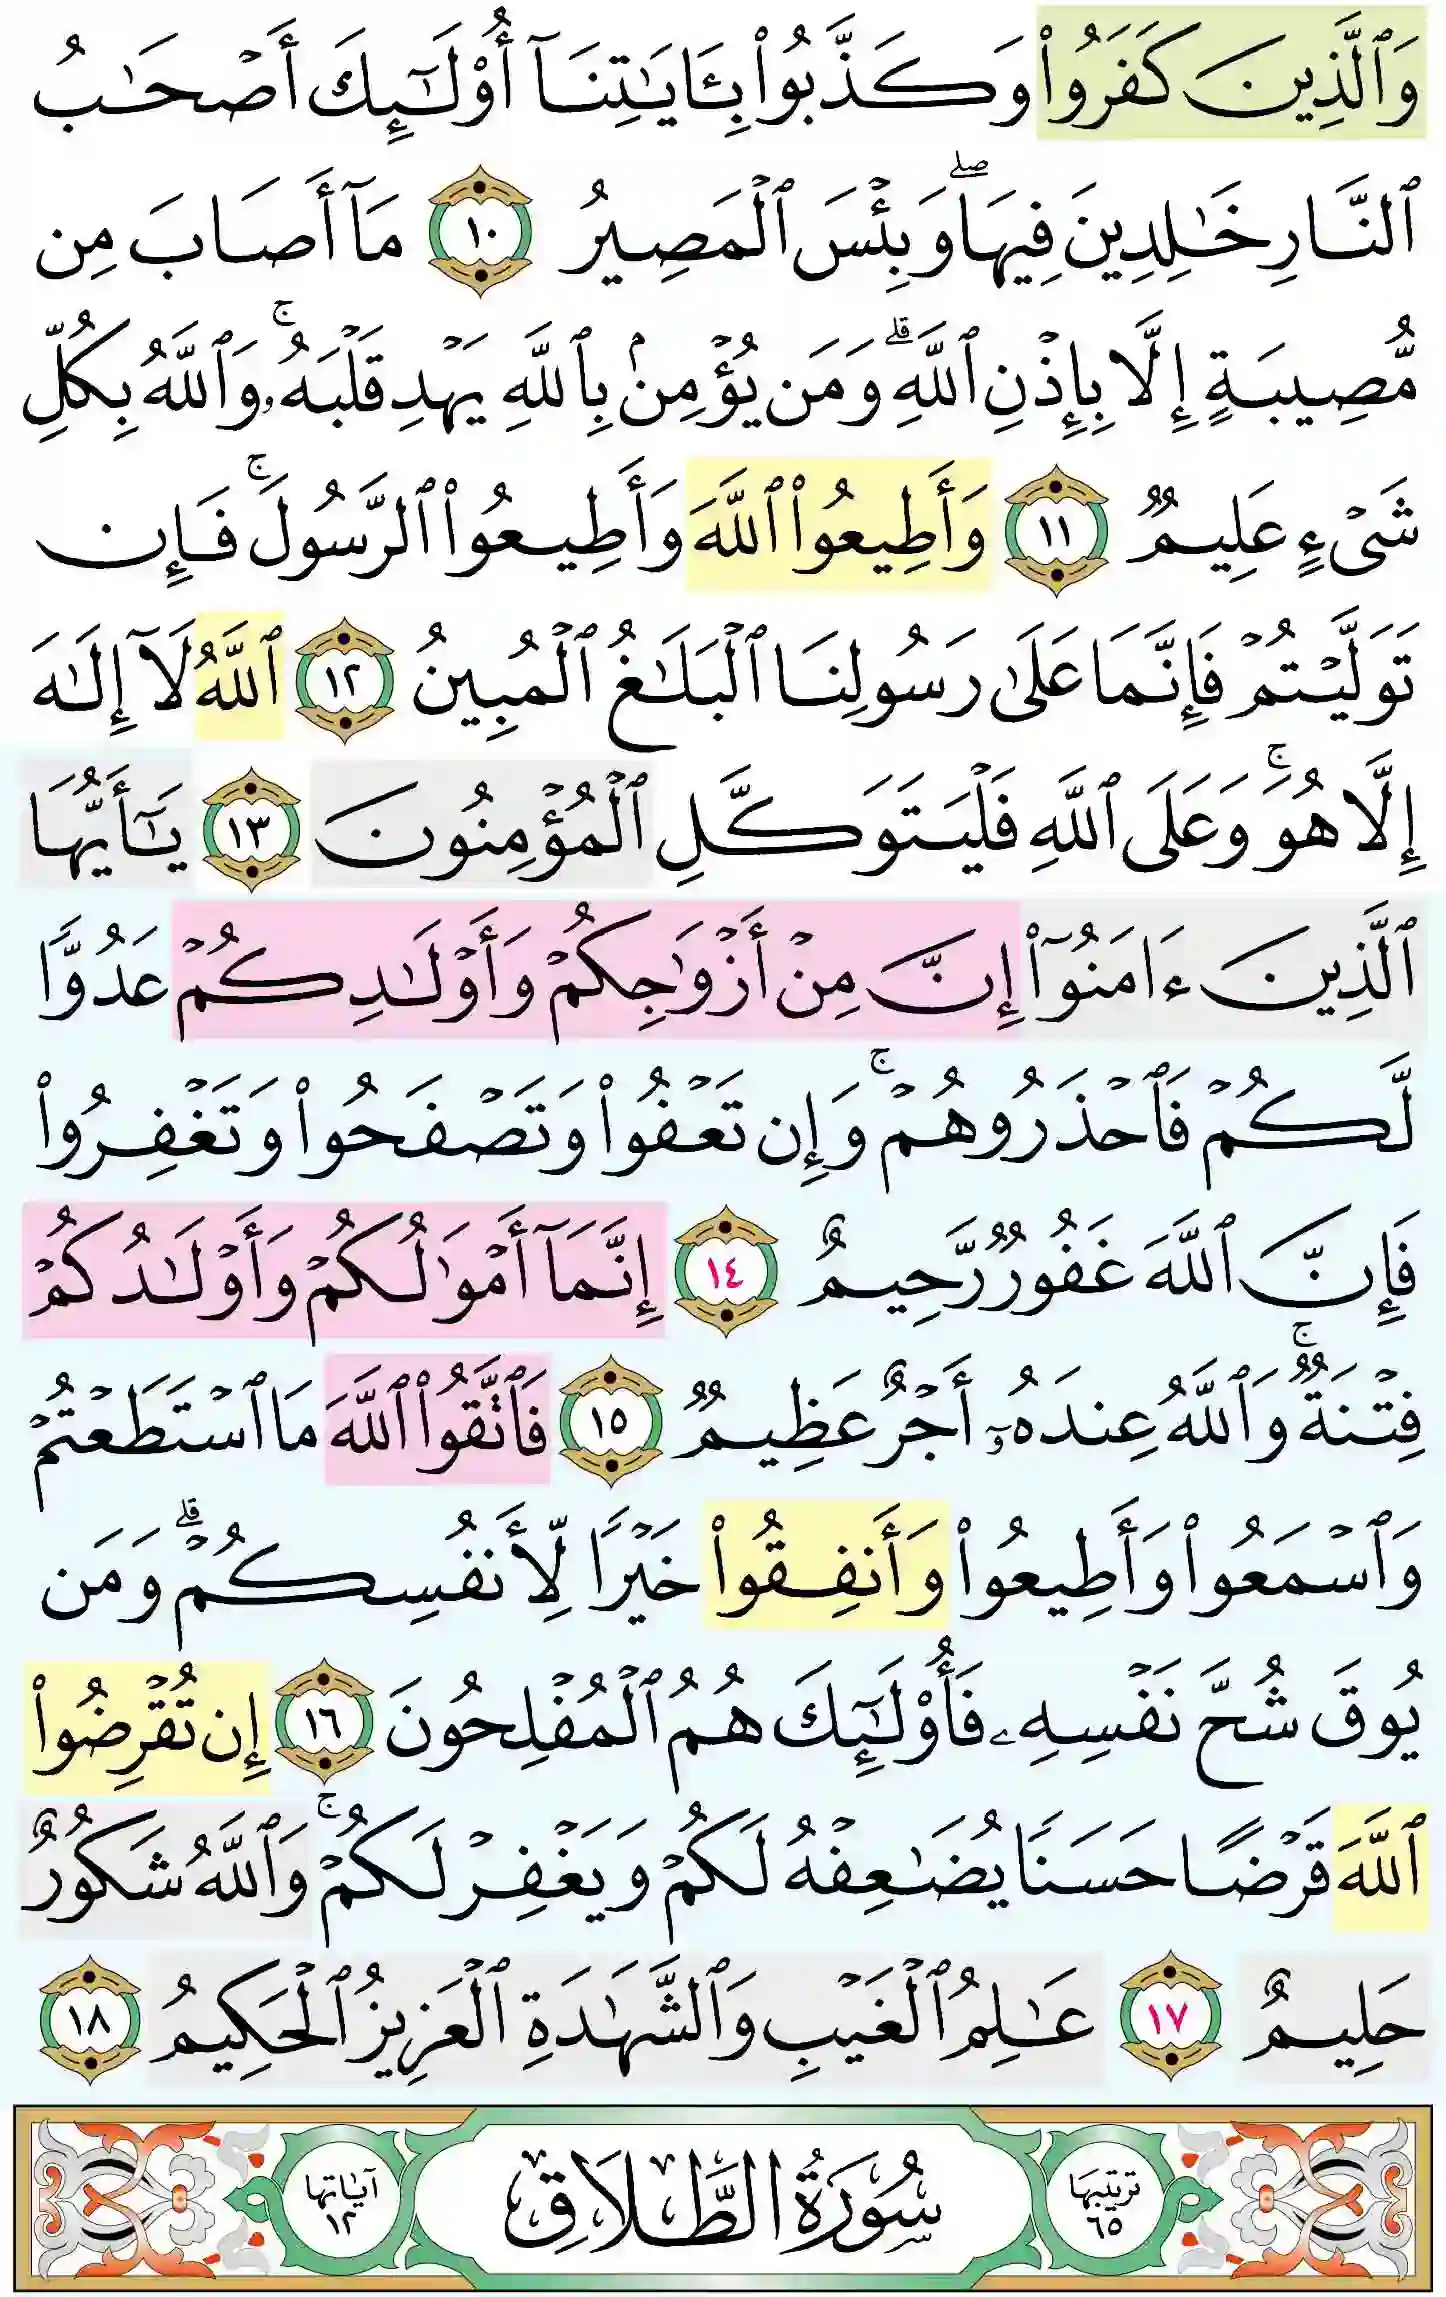 وَٱلَّذِينَ كَفَرُوا۟ وَكَذَّبُوا۟ بِـَٔايَـٰتِنَآ أُو۟لَـٰٓئِكَ أَصۡحَـٰبُ
ٱلنَّارِ خَـٰلِدِينَ فِيهَاۖ وَبِئۡسَ ٱلۡمَصِيرُ ١٠ مَآ أَصَابَ مِن
مُّصِيبَةٍ إِلَّا بِإِذۡنِ ٱللَّهِۗ وَمَن يُؤۡمِنۢ بِٱللَّهِ يَهۡدِ قَلۡبَهُۥۚ وَٱللَّهُ بِكُلِّ
شَىۡءٍ عَلِيمٌ ١١ وَأَطِيعُوا۟ ٱللَّهَ وَأَطِيعُوا۟ ٱلرَّسُولَۚ فَإِن
تَوَلَّيۡتُمۡ فَإِنَّمَا عَلَىٰ رَسُولِنَا ٱلۡبَلَـٰغُ ٱلۡمُبِينُ ١٢ ٱللَّهُ لَآ إِلَـٰهَ
إِلَّا هُوَۚ وَعَلَى ٱللَّهِ فَلۡيَتَوَكَّلِ ٱلۡمُؤۡمِنُونَ ١٣ يَـٰٓأَيُّهَا
ٱلَّذِينَ ءَامَنُوٓا۟ إِنَّ مِنۡ أَزۡوَٰجِكُمۡ وَأَوۡلَـٰدِكُمۡ عَدُوًّا
لَّكُمۡ فَٱحۡذَرُوهُمۡۚ وَإِن تَعۡفُوا۟ وَتَصۡفَحُوا۟ وَتَغۡفِرُوا۟
فَإِنَّ ٱللَّهَ غَفُورٌ رَّحِيمٌ ١٤ إِنَّمَآ أَمۡوَٰلُكُمۡ وَأَوۡلَـٰدُكُمۡ
فِتۡنَةٌۚ وَٱللَّهُ عِندَهُۥٓ أَجۡرٌ عَظِيمٌ ١٥ فَٱتَّقُوا۟ ٱللَّهَ مَا ٱسۡتَطَعۡتُمۡ
وَٱسۡمَعُوا۟ وَأَطِيعُوا۟ وَأَنفِقُوا۟ خَيۡرًا لِّأَنفُسِكُمۡۗ وَمَن
يُوقَ شُحَّ نَفۡسِهِۦ فَأُو۟لَـٰٓئِكَ هُمُ ٱلۡمُفۡلِحُونَ ١٦ إِن تُقۡرِضُوا۟
ٱللَّهَ قَرۡضًا حَسَنًا يُضَـٰعِفۡهُ لَكُمۡ وَيَغۡفِرۡ لَكُمۡۚ وَٱللَّهُ شَكُورٌ
حَلِيمٌ ١٧ عَـٰلِمُ ٱلۡغَيۡبِ وَٱلشَّهَـٰدَةِ ٱلۡعَزِيزُ ٱلۡحَكِيمُ ١٨
ترتيبها ٦٥ سُورَةُ الطَّلَاقِ آياتها ١٢